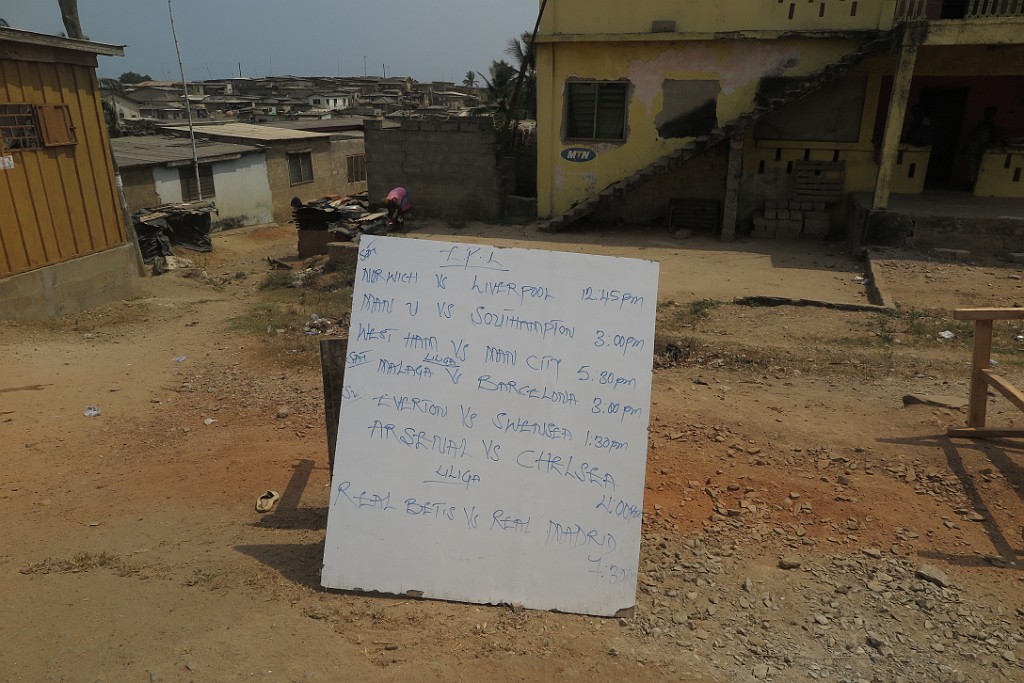 SAT E.P.L
NORWICH VS LIVERPOOL 12.45pm
MAN U VS SOUTHAMPTON 3.00pm
WEST HAM VS MAN CITY 5:30pm
LILIGA
SAT MALAGA VS BARCELONA 3.00pm
SU EVERTON VS SWENSEA 1:30pm
ARSENAL VS CHELSEA
4.00pm
LILIGA
REAL BETIS VS REAL MADRID
7:30
MTN